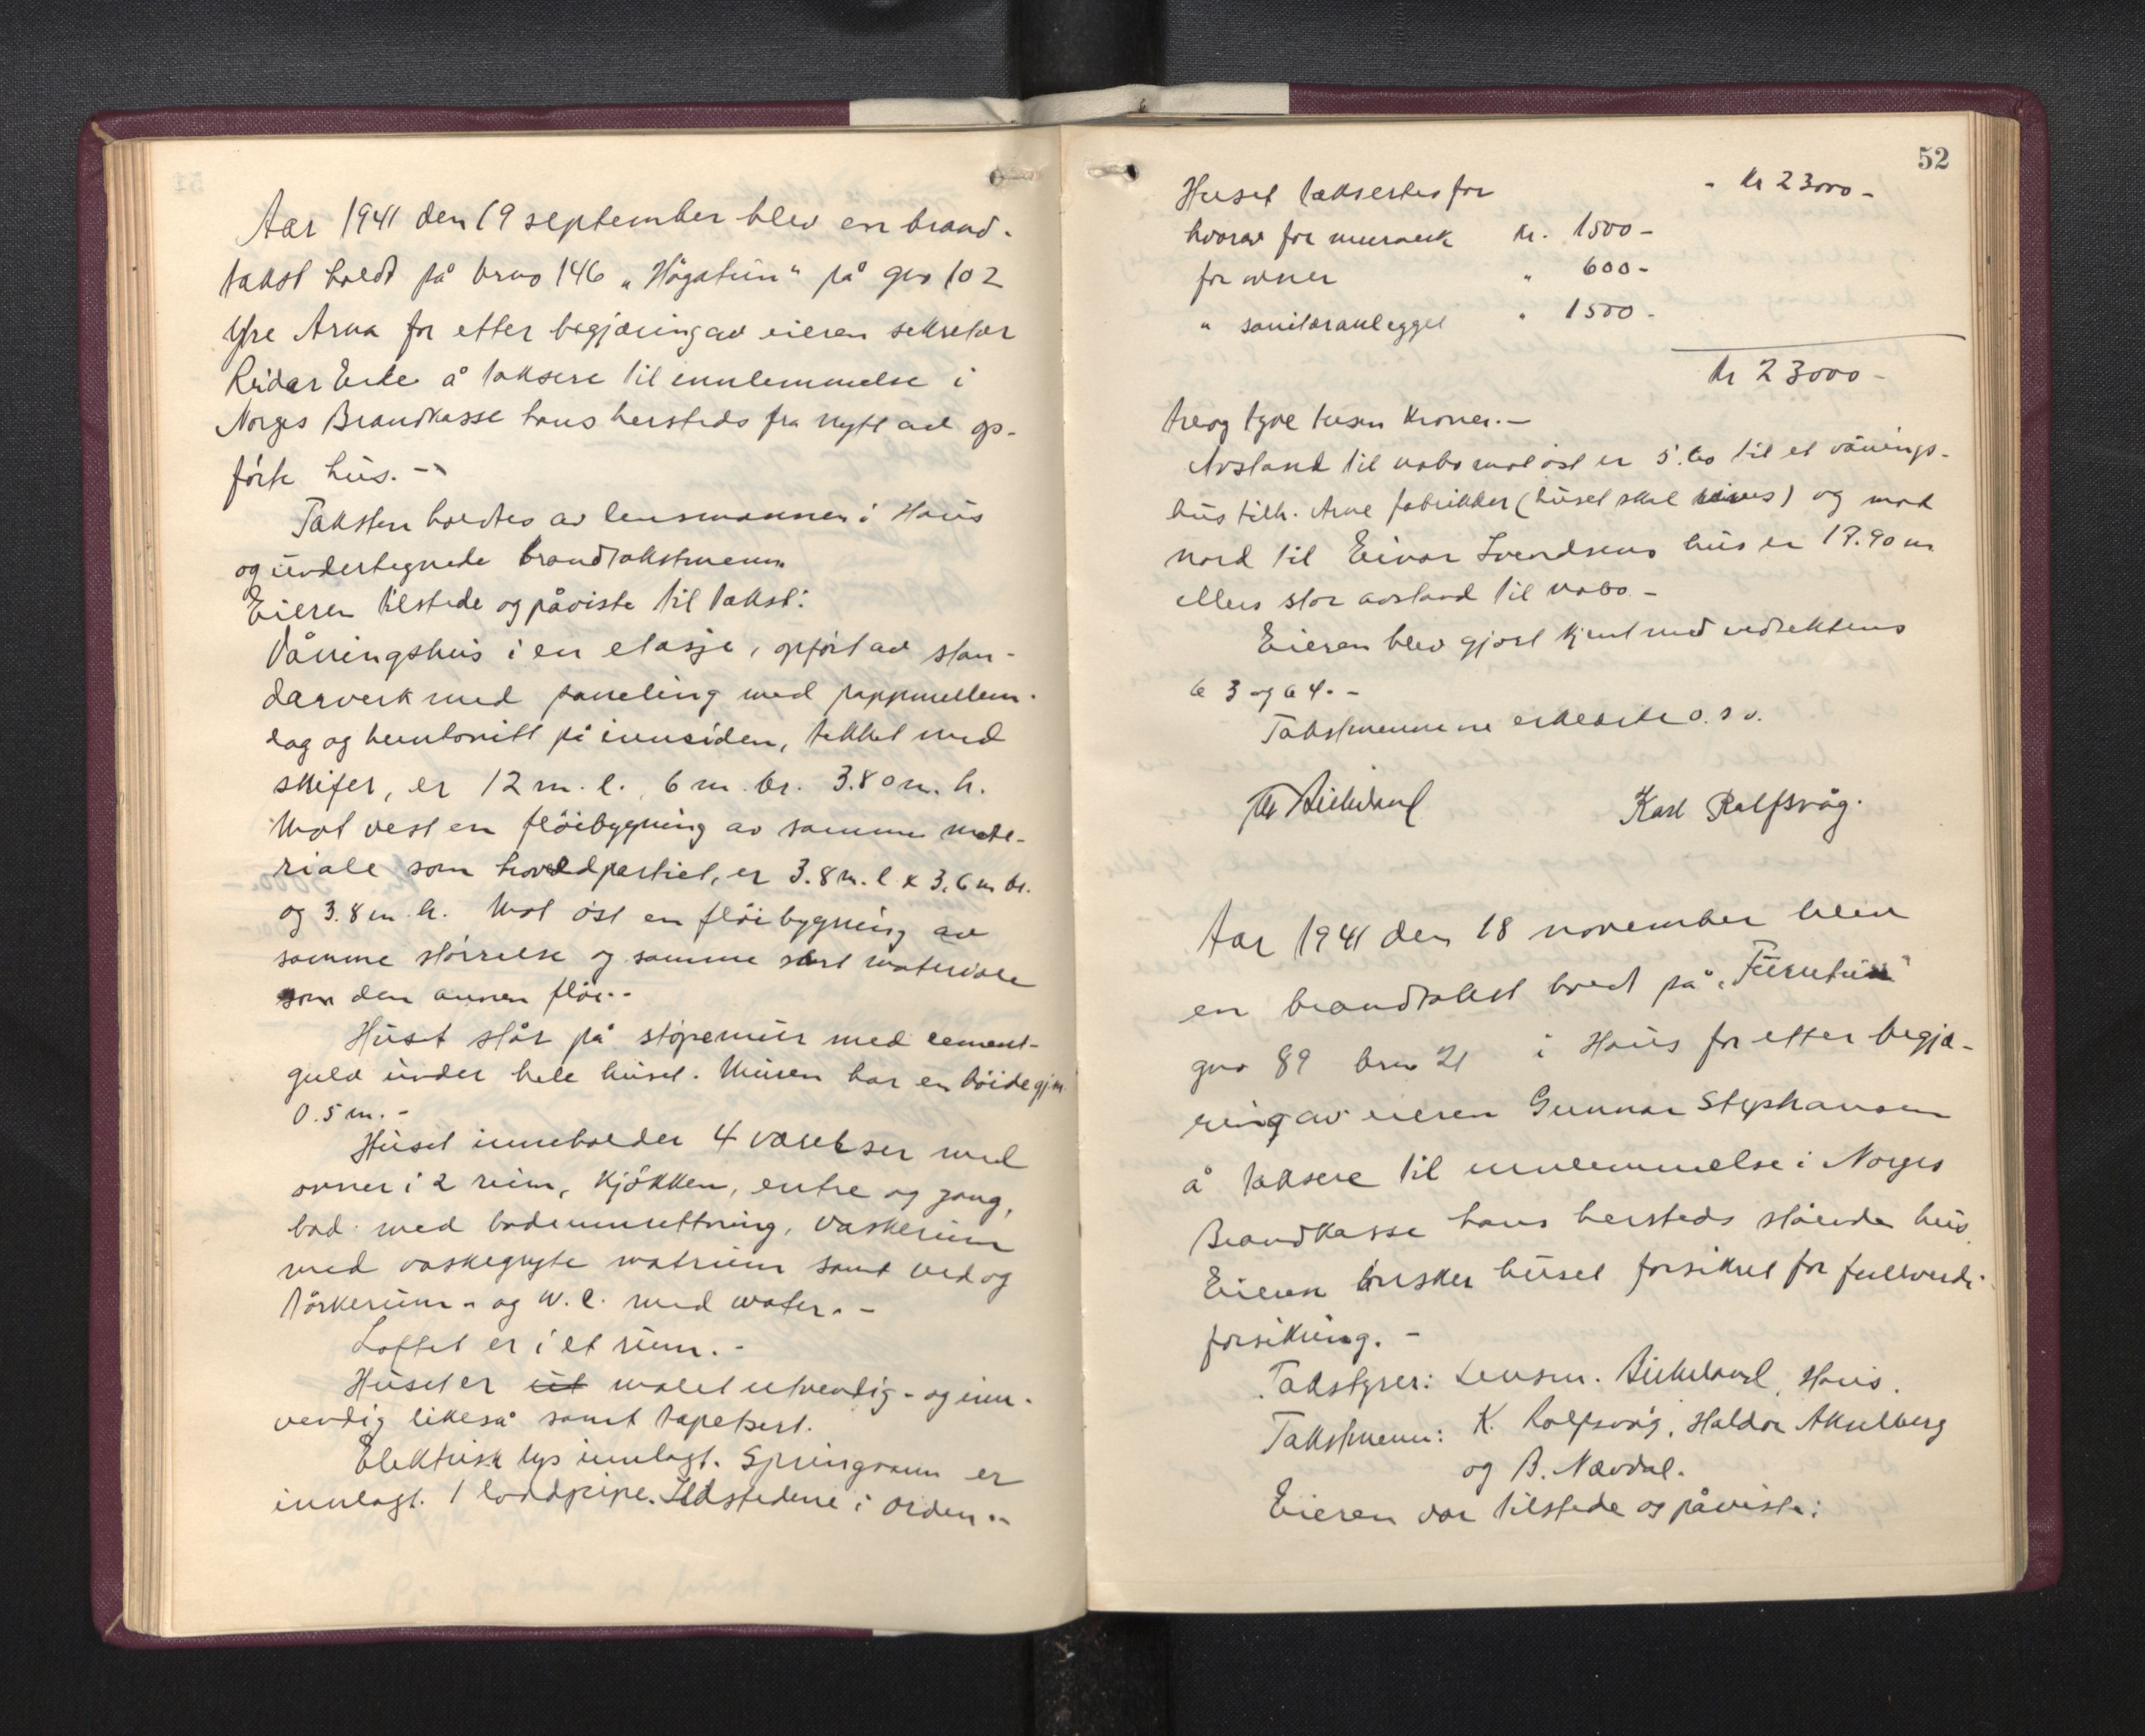 Aar 1941 den 19 september blev en brand-
takst holdt på brno 146 „Högatun" på gno 102
Ytre Arna for etter begjæring av eieren sekretær
Reidar Eide å taksere til innlemmelse i
Norges Brandkasse hans hersteds fra nytt av op-
förte hus. -
Taksten holdtes av lensmannen i Haus
og undertegnede brandtakstmenn.
Eieren tilstede og påviste til takst:
Våningshus i en etasje, opfört av stan-
darverk med paneling med pappmellem-
lag og huntonitt på innsiden, tekket med
skifer, er 12 m. l. 6 m. br. 3.80 m. h.
Mot vest en flöibygning av samme mate-
riale som hovedpartiet, er 3.8 m. l x 3.6 m br.
og 3.8 m. h. Mot öst en flöibygning av
samme störrelse og samme slags materiale
som den annen flöi.-
Huset står på stöpemur med cement-
gulv under hele huset. Muren har en höide gj.m.
0.5 m. -
Huset inneholder 4 værelser med
ovner i 2 rum, kjökken, entre og gang,
bad med badeinnrettning, vaskerum
med vaskegryte matrum samt ved og
törkerum - og W. C. med water. -
Loftet er i et rum. -
Huset er ut malet utvendig - og inn-
vendig likeså samt tapetsert.
Elektrisk lys innlagt. Springvann er
innlagt. 1 loddpipe. Ildstedene i orden.-
52
Huset taksertes for - kr 23000 -
hvorav for murverk kr. 1500 -
for ovner " 600 -
" sanitæranlegget " 1500 -
kr 23000 -
treog tyve tusen kroner. -
Avstand til nabo mot öst er 5.60 til et vånings-
hus tilh. Arne fabrikker (huset skal rives) og mot
nord til Einar Svendsens hus er 17.90 m
ellers stor avstand til nabo -
Eieren blev gjort kjent med vedtektens
63 og 64. -
Takstmennene erklærte o. s v.
Birkeland Karl Rolfsvåg.
Aar 1941 den 18 november blev
en brandtakst holdt på „Furutun"
gno 89 brno 21 i Haus for etter begjæ-
ring av eieren Gunnar Stephansen
å taksere til innlemmelse i Norges
Brandkasse hans hersteds stående hus.
Eieren önsker huset forsikret for fullverdi-
forsikring. -
Takstyrer: Lensm. Birkeland, Haus.
Takstmenn: K. Rolfsvåg, Haldor Akselberg
og B. Nævdal.
Eieren var tilstede og påviste: